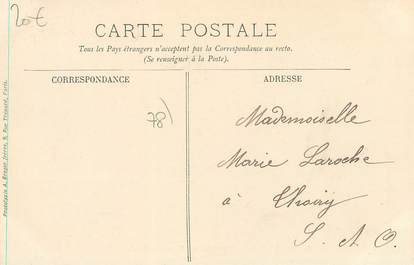 20€
CARTE POSTALE
Tous les Pays étrangers n'acceptent pas la Correspondance au recto.
(Se renseigner à la Poste).
CORRESPONDANCE
ADRESSE
78)
Mademoiselle
Marie Laroche
à Thoiry
S. et O.
Phototypie A. Breger frères, 9, Rue Thénard, Paris.